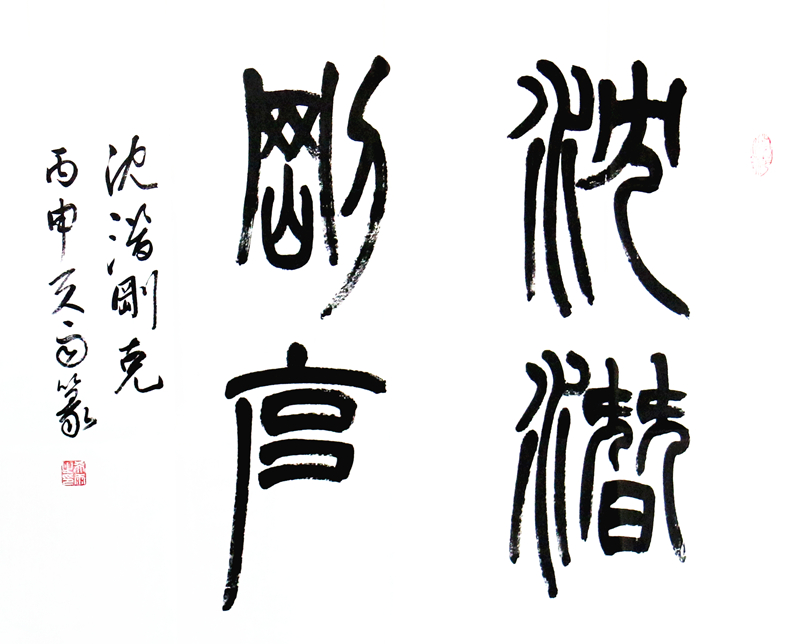 沈潛
剛克
沈潜剛克
丙申天雨篆